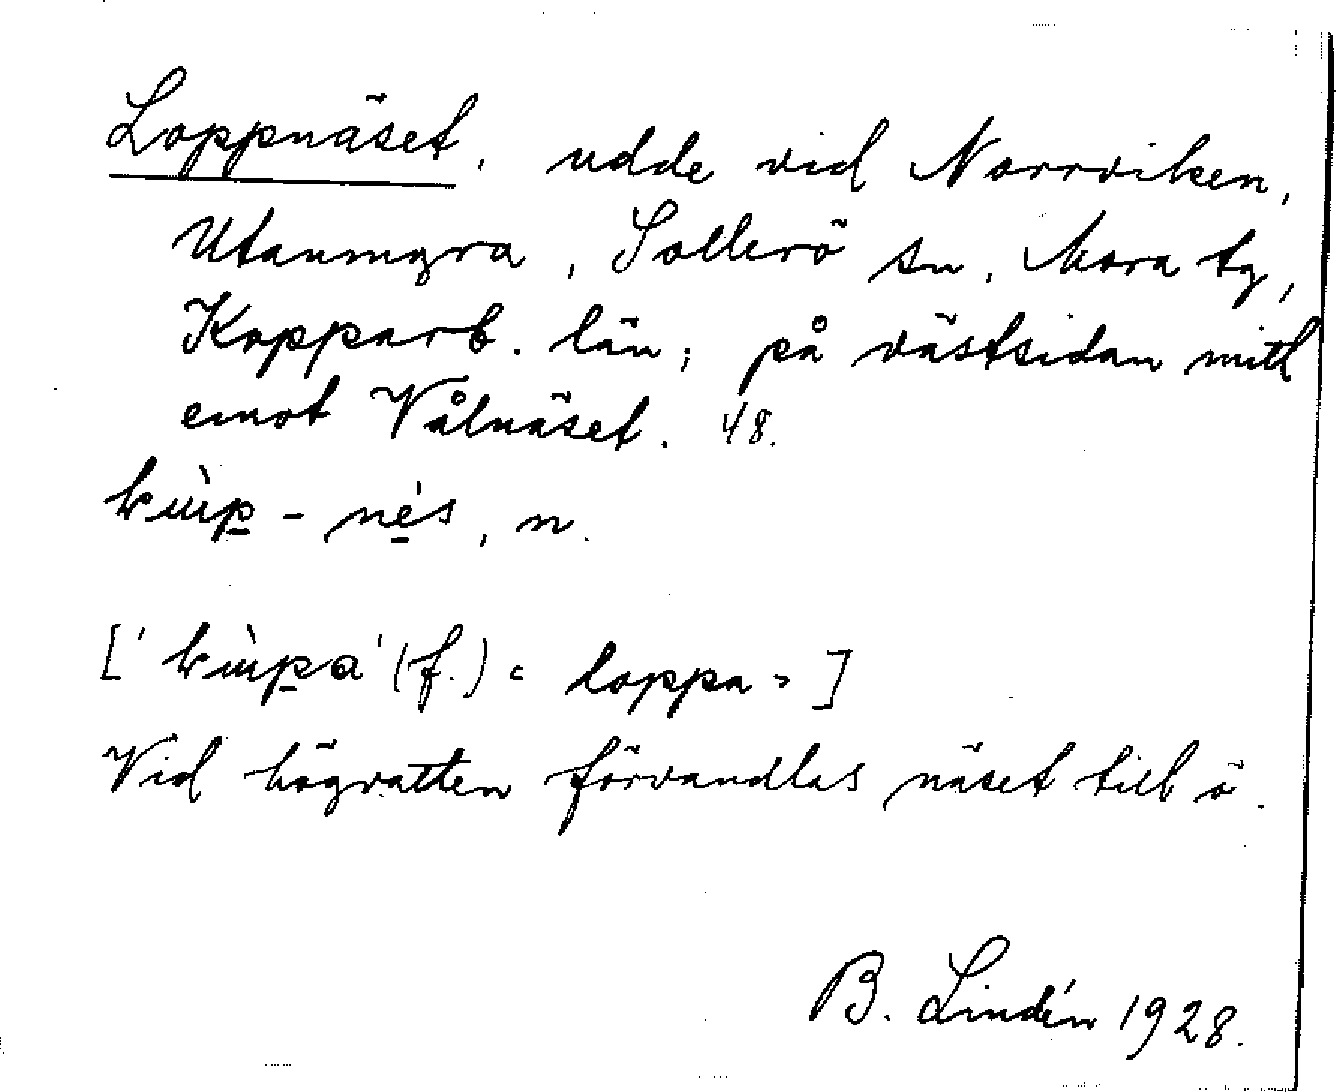 Loppnäset, udde vid Norrviken,
Utanmyra, Sollerö sn, Mora tg,
Kopparb. län; på västsidan mitt
emot Vålnäset. 48.
- nés, n.
[' ' (f.) = loppa = ]
Vid högvatten förvandlas näset till ö.
B. Lindén 1928.